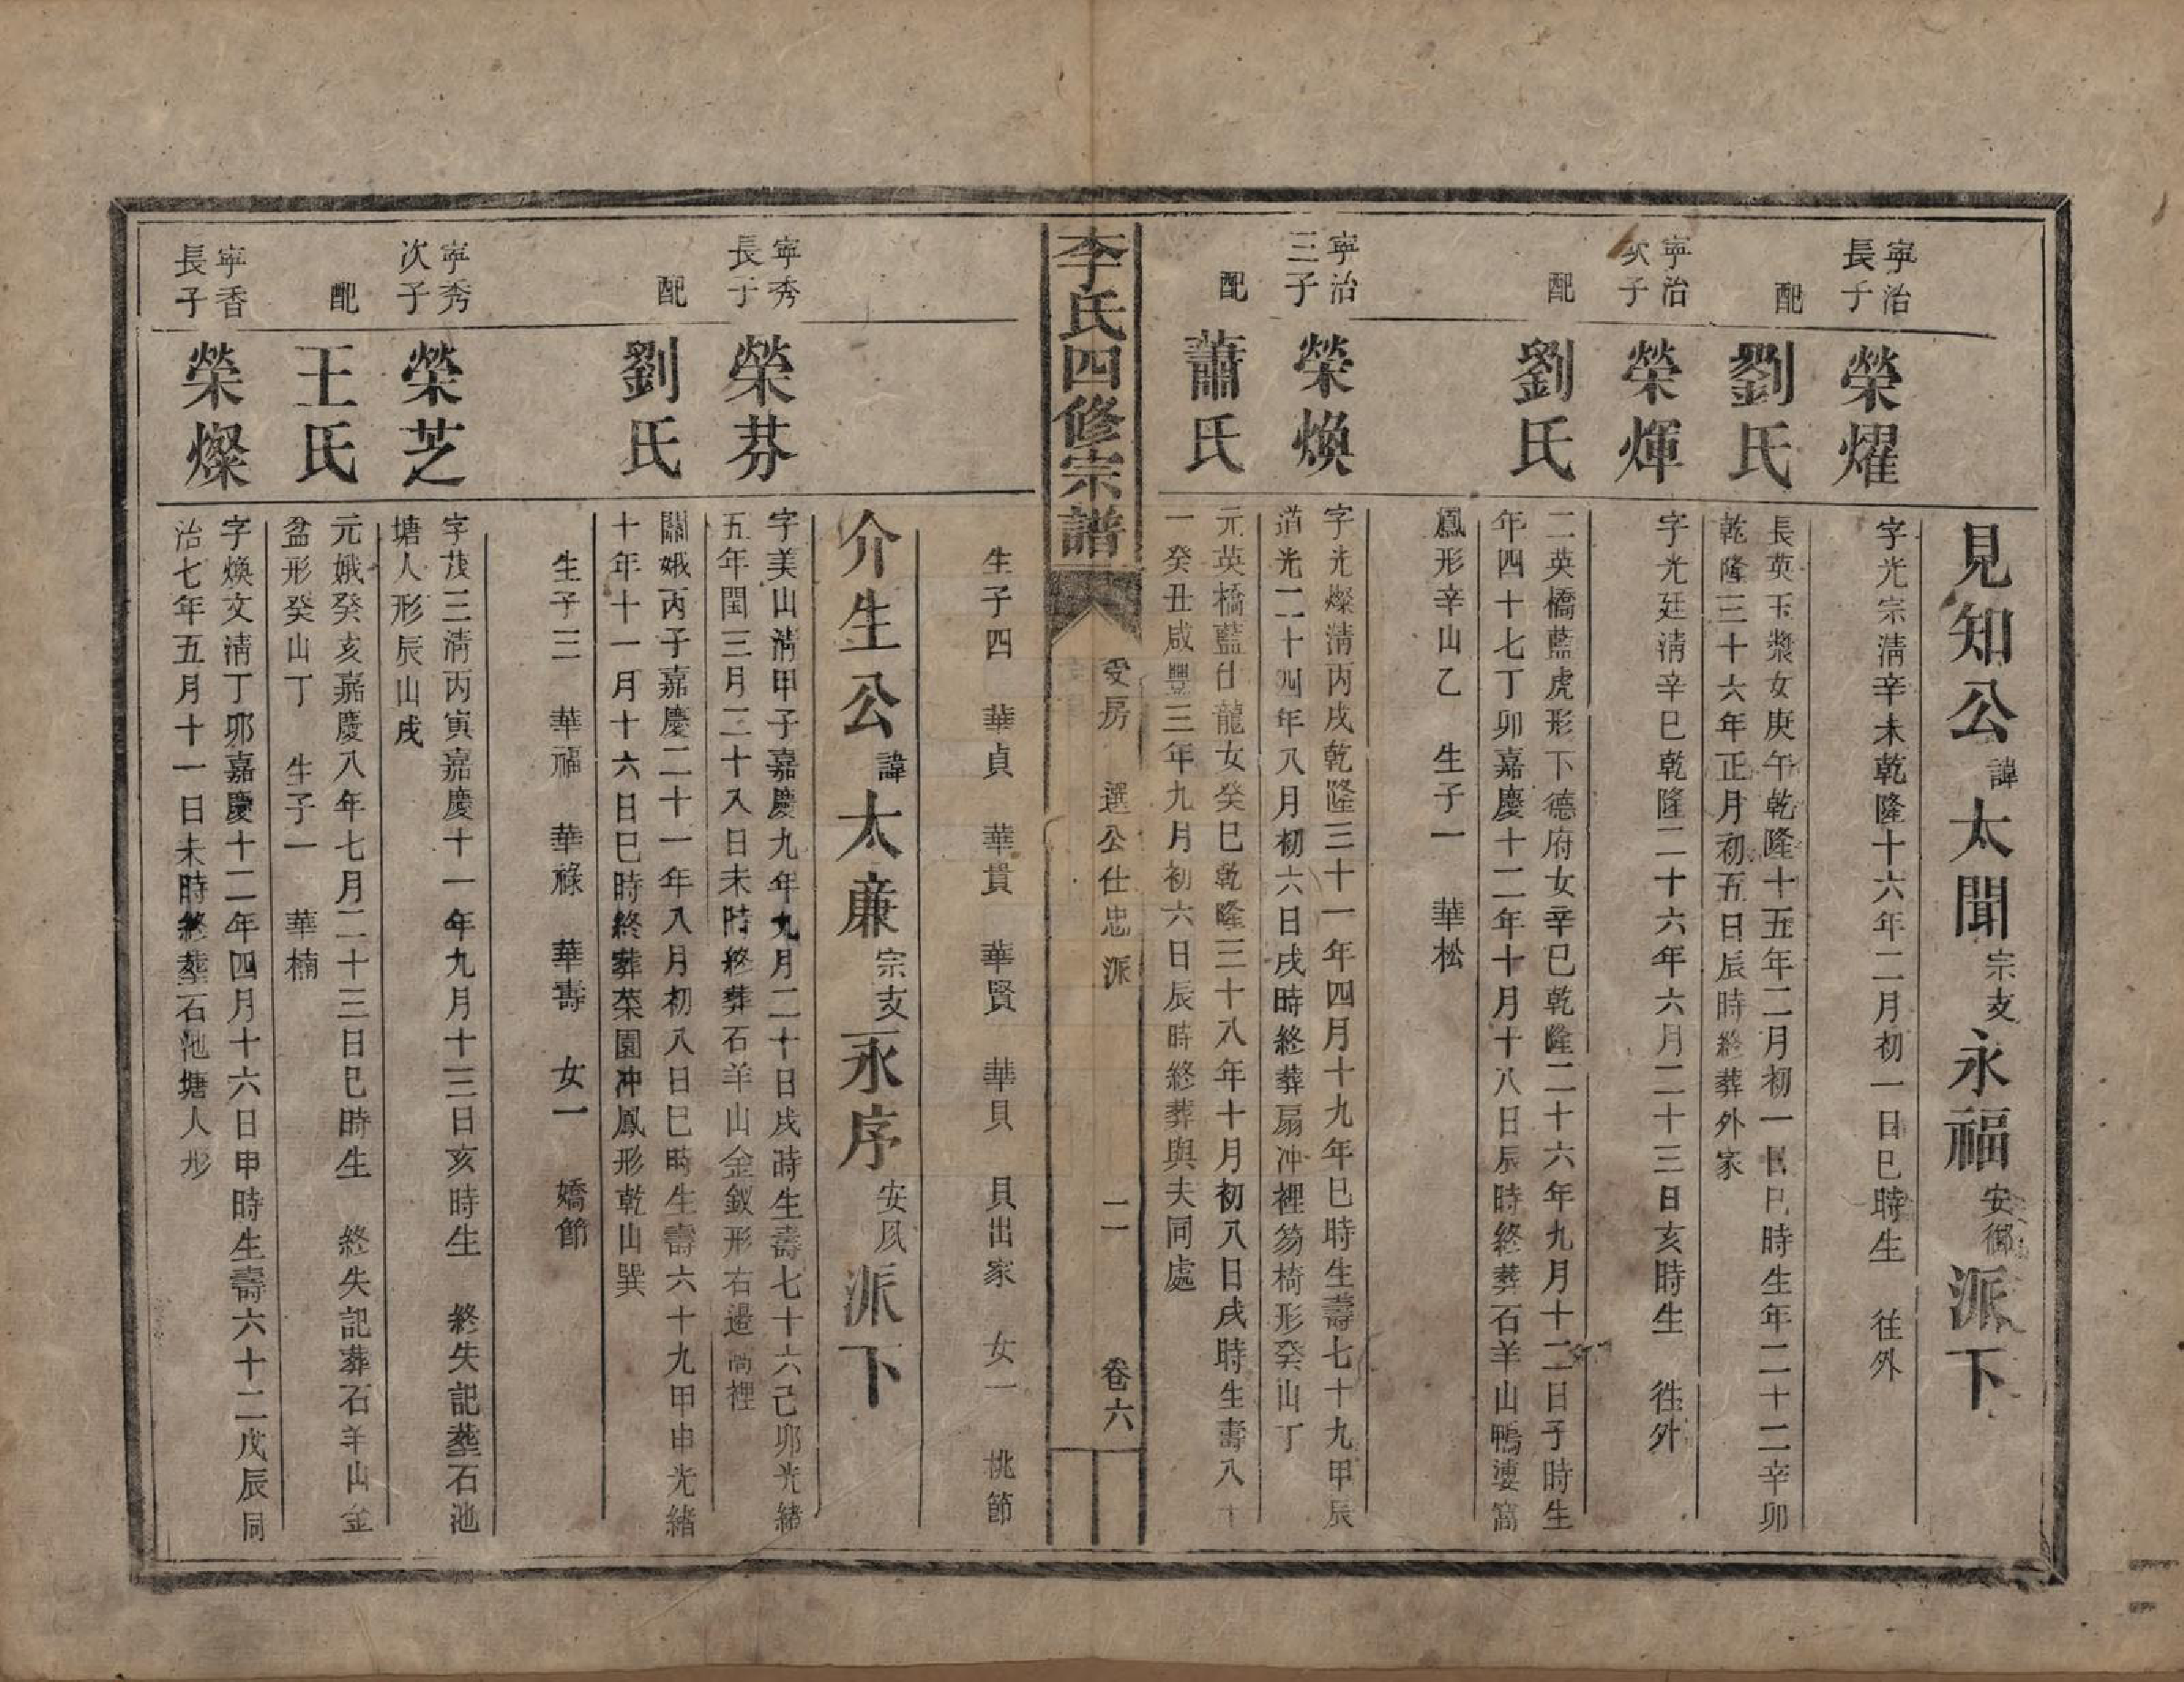 見知公諱太聞宗支永福安鄉派下
寧治長子
榮燿
字光宗清辛未乾隆十六年二月初一日巳時生 徃外
配
劉氏
長英玉漿女庚午乾隆十五年二月初一日巳時生年二十二辛卯
乾隆三十六年正月初五日辰時終葬外家
寧治次子
榮煇
字光廷清辛巳乾隆二十六年六月二十三日亥時生 徃外
配
劉氏
二英橋藍虎形下德府女辛巳乾隆二十六年九月十二日子時生
年四十七丁卯嘉慶十二年十月十八日辰時終葬石羊山鴨漊窩
鳳形辛山乙 生子一 華松
寧治三子
榮煥
字光燦清丙戌乾隆三十一年四月十九年巳時生壽七十九甲辰
道光二十四年八月初六日戌時終葬扇冲裡笏椅形癸山丁
配
蕭氏
元英橋藍仕龍女癸巳乾隆三十八年十月初八日戌時生壽八十
一癸丑咸豐三年九月初六日辰時終葬與夫同處
李氏四修宗譜
受房 選公仕忠派 二 卷六
生子四 華貞 華貫 華賢 華貝 貝出家 女一 桃節
介生公諱太廉宗支永序安夙派下
寧秀長子
榮芬
字美山清甲子嘉慶九年九月二十日戌時生壽七十六己卯光緒
五年閏三月二十八日未時終葬石羊山金釵形右邊尚裡
配
劉氏
關娥丙子嘉慶二十一年八月初八日巳時生壽六十九甲申光緒
十年十一月十六日巳時終葬菜園冲鳳形乾山巽
生子三 華福 華祿 華壽 女一 嬌節
寧秀次子
榮芝
字茂三清丙寅嘉慶十一年九月十三日亥時生 終失記葬石池
塘人形辰山戌
配
王氏
元娥癸亥嘉慶八年七月二十三日巳時生 終失記葬石羊山金
盆形癸山丁 生子一 華楠
寧香長子
榮燦
字煥文清丁卯嘉慶十二年四月十六日申時生壽六十二戊辰同
治七年五月十一日未時終葬石池塘人形